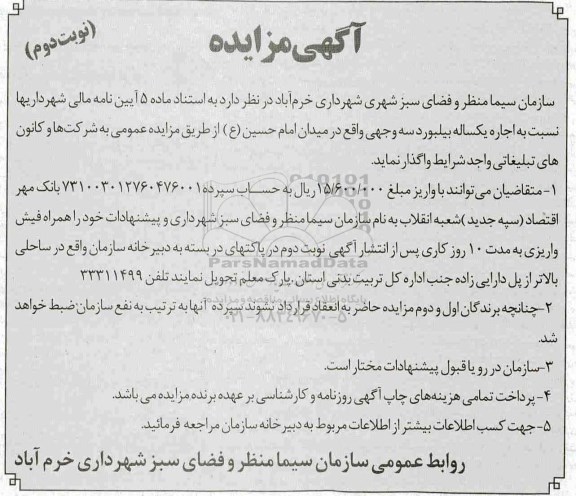 آگهی مزایده
(نوبت دوم)
سازمان سیما منظر و فضای سبز شهری شهرداری خرم‌آباد در نظر دارد به استناد ماده ۵ آیین نامه مالی شهرداریها
نسبت به اجاره یکساله بیلبورد سه وجهی واقع در میدان امام حسین (ع) از طریق مزایده عمومی به شرکت‌ها و کانون
های تبلیغاتی واجد شرایط واگذار نماید.
۱- متقاضیان می‌توانند با واریز مبلغ ۱۵/۶۰۰/۰۰۰ ریال به حساب سپرده ۷۳۱۰۰۳۰۱۲۷۶۰۴۷۶۰۰۱ بانک مهر
اقتصاد (سپه جدید) شعبه انقلاب به نام سازمان سیما منظر و فضای سبز شهرداری و پیشنهادات خود را همراه فیش
واریزی به مدت ۱۰ روز کاری پس از انتشار آگهی نوبت دوم در پاکتهای در بسته به دبیرخانه سازمان واقع در ساحلی
بالاتر از پل دارایی زاده جنب اداره کل تربیت بدنی استان، پارک معلم تحویل نمایند تلفن ۳۳۳۱۱۴۹۹
۲- چنانچه برندگان اول و دوم مزایده حاضر به انعقاد قرارداد نشوند سپرده آنها به ترتیب به نفع سازمان ضبط خواهد
شد.
۳- سازمان در رد یا قبول پیشنهادات مختار است.
۴- پرداخت تمامی هزینه‌های چاپ آگهی روزنامه و کارشناسی بر عهده برنده مزایده می باشد.
۵- جهت کسب اطلاعات بیشتر از اطلاعات مربوط به دبیرخانه سازمان مراجعه فرمائید.
روابط عمومی سازمان سیما منظر و فضای سبز شهرداری خرم آباد
ParsNamadData
۰۲۱-۸۸۳۴۹۶۷۰-۵